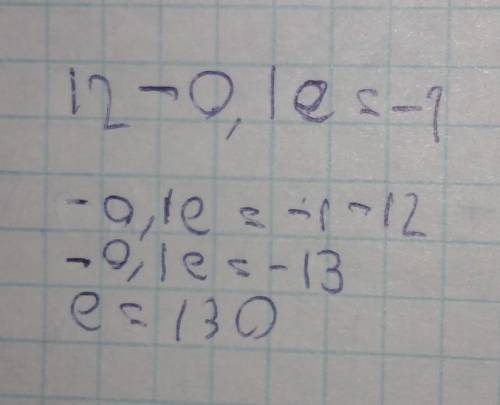 12-0,1e=-1
-0,1e=-1-12
-0,1e=-13
e=130